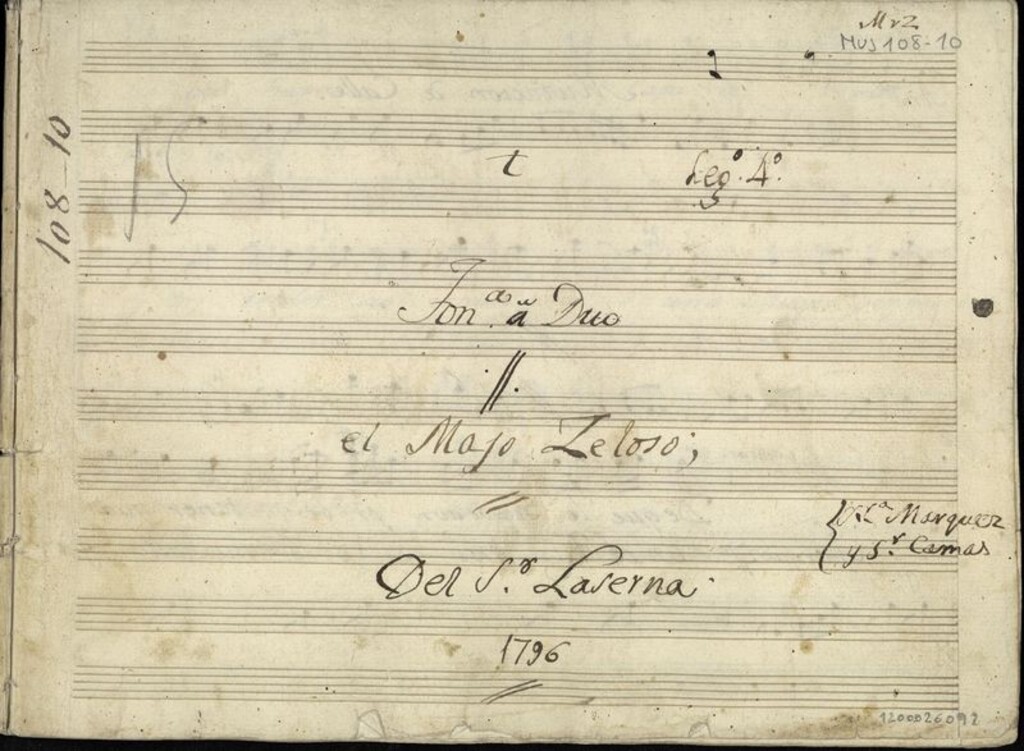 MUS 108-10
108-10
t
Leg.º 4.º
5
Ton.ª â Duo
el Majo Zeloso;
S.ª Marquez
y S.r Camas
Del S.r Laserna.
1796
1200026092